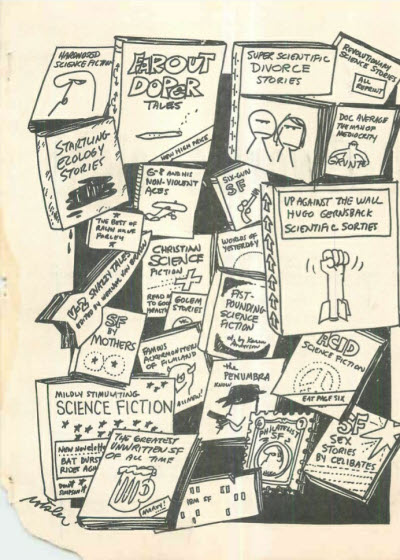 HARDNOSED
SCIENCE FICTION
FAROUT
DOPER
TALES
NEW HIGH PRICE
SUPER SCIENTIFIC
DIVORCE
STORIES
REVOLUTIONARY
SCIENCE STORIES
ALL
REPRINT
DOC AVERAGE
THE MAN OF
MEDIOCRITY
GRUNT
STARTLING
ECOLOGY
STORIES
G-8 AND HIS
NON-VIOLENT
ACES
SIX-GUN
SF
UP AGAINST THE WALL
HUGO GERNSBACK
SCIENTIFIC SORTIES
THE BEST OF
FARLEY
CHRISTIAN
SCIENCE
FICTION
READ
TO GOOD
HEALTH
GOLEM
STORIES
WORLDS OF
YESTERDAY
SNAZZY TALES
EDITED BY
FIST-
POUNDING
SCIENCE
FICTION
SF
BY
MOTHERS
FAMOUS
ACKERMONSTERS
OF FILMLAND
ACID
SCIENCE FICTION
EAT PAGE SIX
THE PENUMBRA
KNOWS
MILDLY STIMULATING
SCIENCE FICTION
NEW NOVELETTE
BAT DURST
RIDES AGAIN
THE GREATEST
UNWRITTEN SF
OF ALL TIME
IBM SF
PHILATELIST
SF
SF
SEX
STORIES
BY CELIBATES